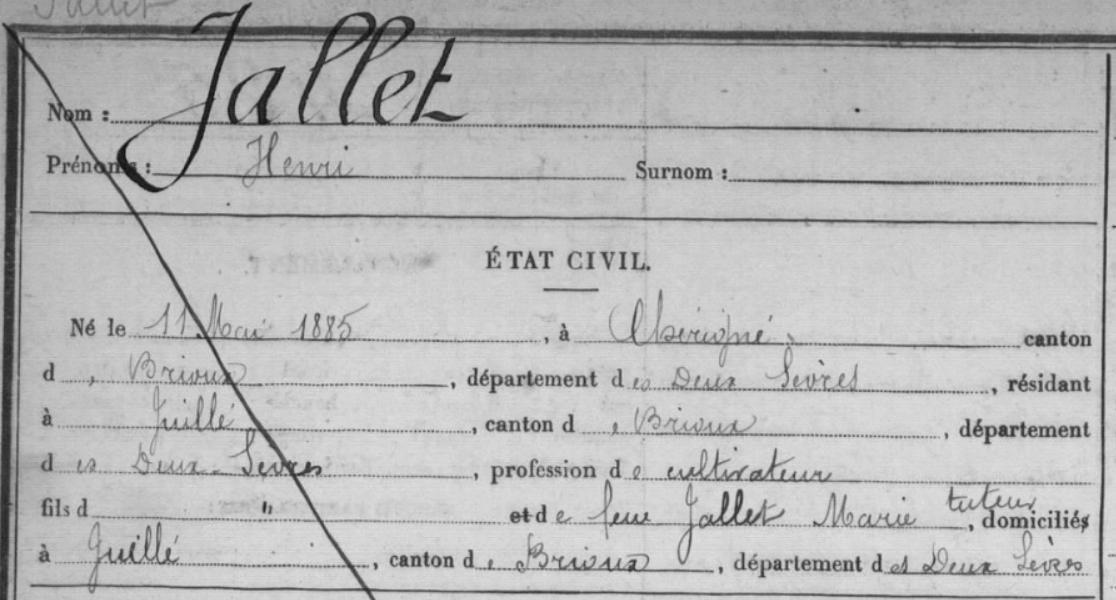 Jallet
Nom : Jallet
Prénoms : Henri Surnom :
ÉTAT CIVIL.
Né le 11 Mai 1885, à Chérigné, canton
de Brioux, département des Deux Sèvres, résidant
à Juillé, canton de Brioux, département
des Deux-Sèvres, profession de cultivateur
fils d " et de feue Jallet Marie tuteur, domiciliés
à Juillé, canton de Brioux, département des Deux Sèvres